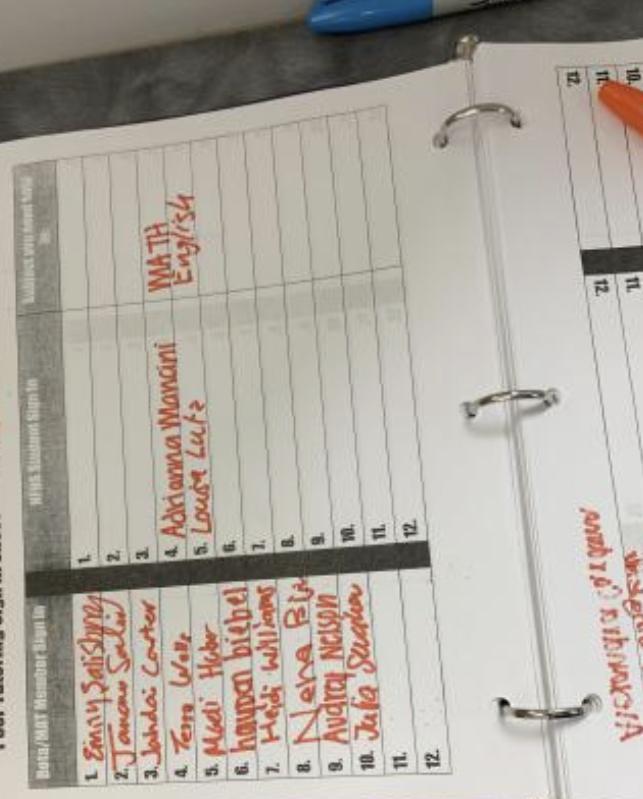 Peer Tutoring Sign In Sheet
Beta/MAT Member Sign In
NFHS Student Sign In
Subject you need help in
1. Emmy Salisbury
2.
3. Jahdai Carter
4. Tess Wells
5. Madi Huber
6. hayden biebel
7. Heidi Williams
8. Nena
9. Audrey Nelson
10. Julia
11.
12.
1.
2.
3.
4. Adrianna Mancini MATH
5. Louisa Lutz English
6.
7.
8.
9.
10.
11.
12.
10.
11.
12.
11.
12.